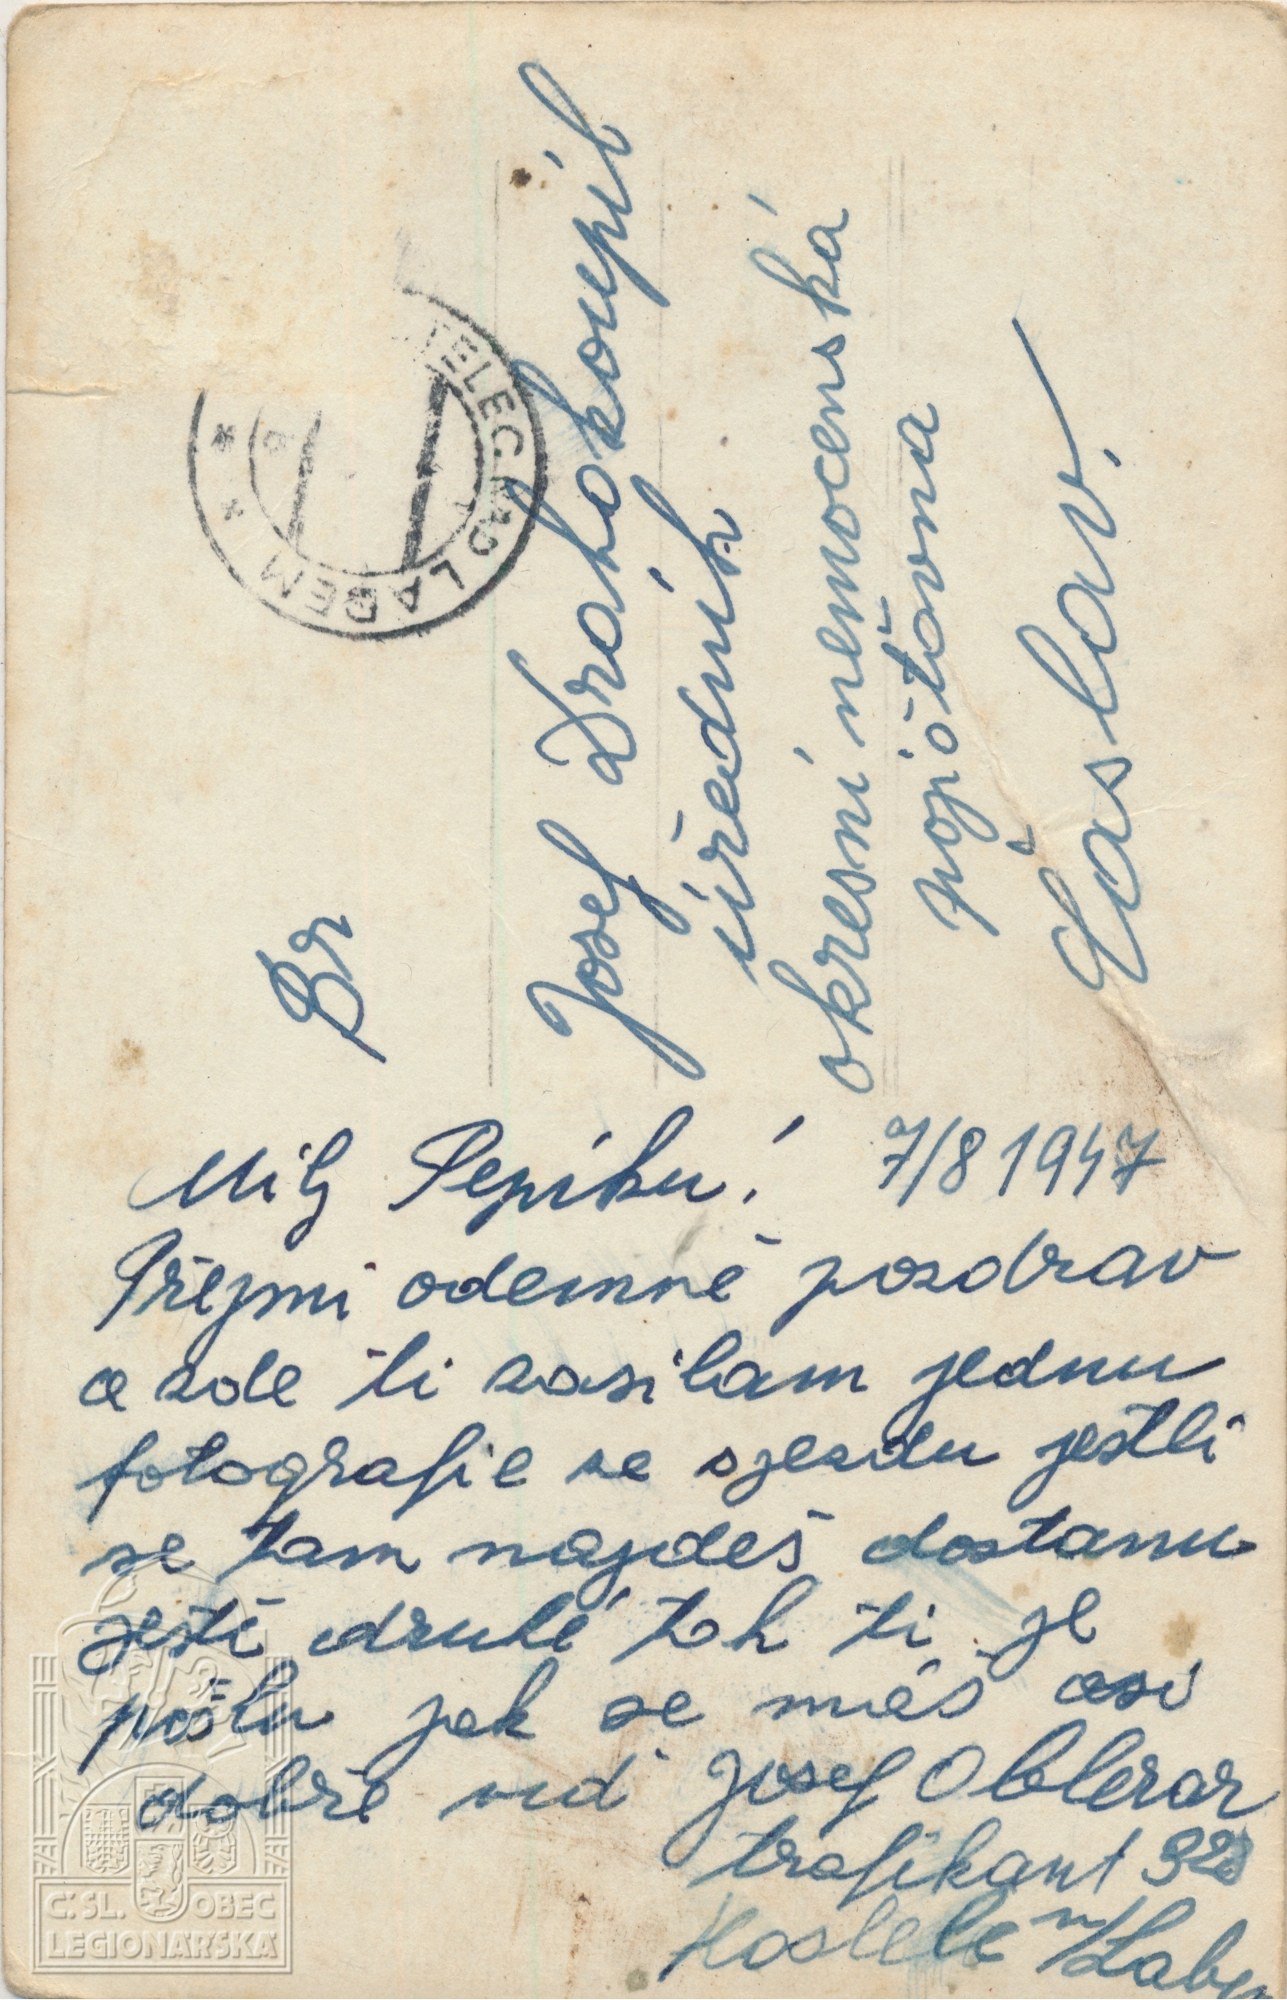 KOSTELEC NAD LABEM
Br
Josef Drahokoupil
úředník
okresní nemocenská
pojišťovna
Čáslav.
Milý Pepíku! 7/8 1947
Přejmi odemně pozdrav
a zde ti zasilam jednu
fotografie ze sjezdu jestli
se tam najdeš dostanu
jestě druhé tak ti je
pošlu jak se máš asi
dobře viď Josef
trafikant 92
Kostelc n/Labem
Č. SL. OBEC
LEGIONÁŘSKÁ